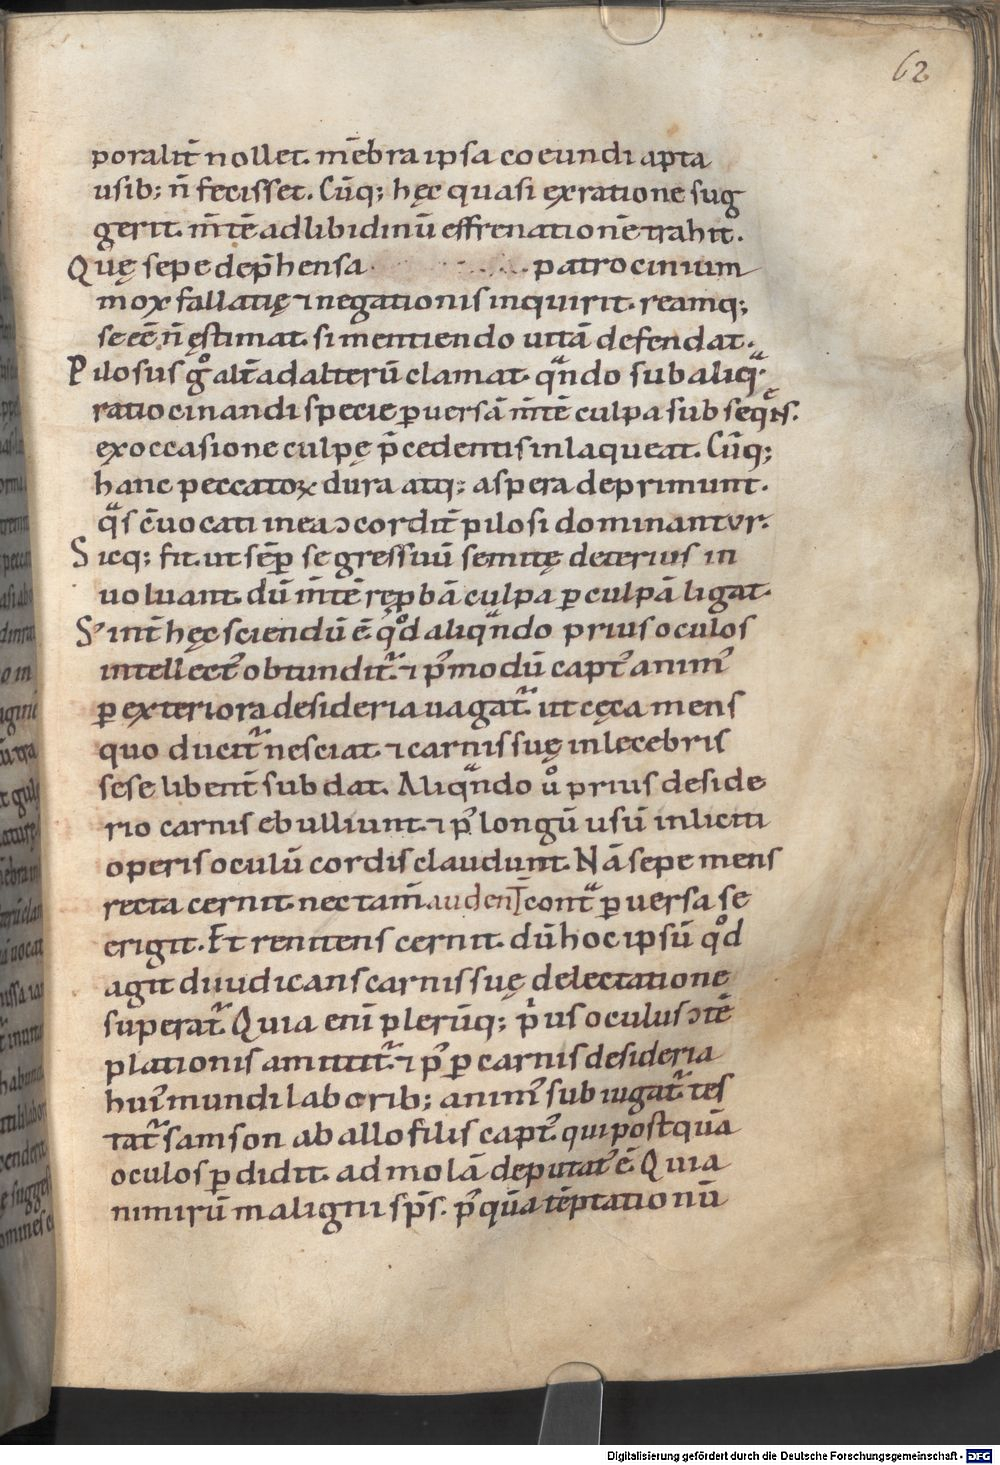 62
poralit̄ nollet. m̄ebra ipsa coeundi apta
usib; n̄ fecisset. Cūq; hęc quasi ex ratione sug
gerit. m̄tē ad libidinū effrenationē trahit.
Quę sepe dep̄hensa patrocinium
mox fallatię ⁊ negationis inquirit. reamq;
se eē n̄ ęstimat. si mentiendo uitā defendat.
Pilosus gͦ alt̄ ad alterū clamat. qᷓndo sub aliqᷓ
ratiocinandi specie ꝑuersā m̄tē culpa subseqͤ̄s.
ex occasione culpę p̄cedentis inlaqueat. Cūq;
hanc peccatoꝝ dura atq; aspera deprimunt.
qᷓs c̄uocati in ea ↄcordit̄ pilosi dominantur.
Sicq; fit. ut sēꝑ se gressuū semitę deterius in
uoluant. dū m̄tē reꝓbā culpa ꝑ culpā ligat.
S; int̄ hęc sciendū ē qͦd aliqᷓndo prius oculos
intellectꝰ obtunditᷓ. ⁊ pꝰmodū captꝰ animꝰ
ꝑ exteriora desideria uagatᷓ. ut cęca mens
quo ducitᷓ nesciat. ⁊ carnis suę inlecebris
sese libent̄ subdat. Aliqᷓndo uͦ prius deside
rio carnis ebulliunt. ⁊ pꝰ longū usū inliciti
operis oculū cordis claudunt. Nā sepe mens
recta cernit. nec tam̄ audent̄ contᷓ ꝑuersa se
erigit. Et renitens cernit. dū hoc ipsū qͦd
agit diiudicans carnis suę delectatione
superatᷓ. Quia enī plerūq; pͥus oculus ↄtē
plationis amittitᷓ. ⁊ pꝰ ꝑ carnis desideria
huiꝰ mundi laborib; animꝰ subiugatᷓ. tes
tatᷓ samson ab allofilis captꝰ. qui postquā
oculos ꝑdidit. ad molā deputatꝰ ē. Quia
nimirū maligni sp̄s. pꝰquā tēptationū
Digitalisierung gefördert durch die Deutsche Forschungsgemeinschaft - DFG